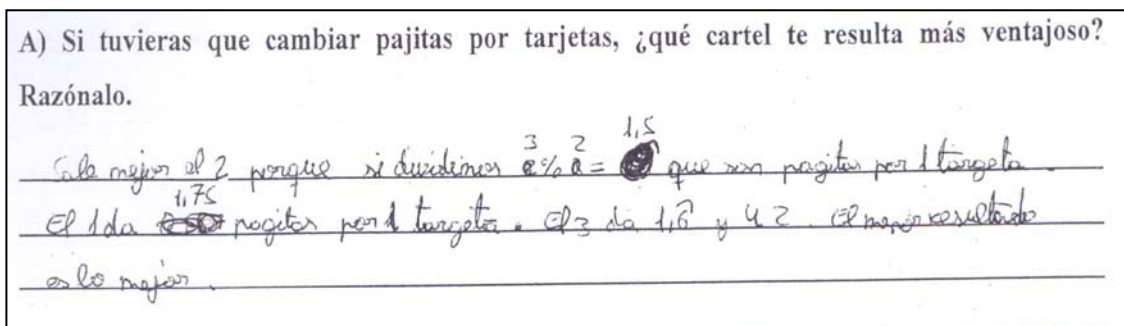 A) Si tuvieras que cambiar pajitas por tarjetas, ¿qué cartel te resulta más ventajoso?
Razónalo.
Sale mejor el 2 porque si dividimos 3 % 2 = 1,5 que son pagitas por 1 targeta.
El 1 da 1,75 pagitas por 1 targeta. El 3 da 1,6̂ y 4 2. El menor resultado
es lo mejor.